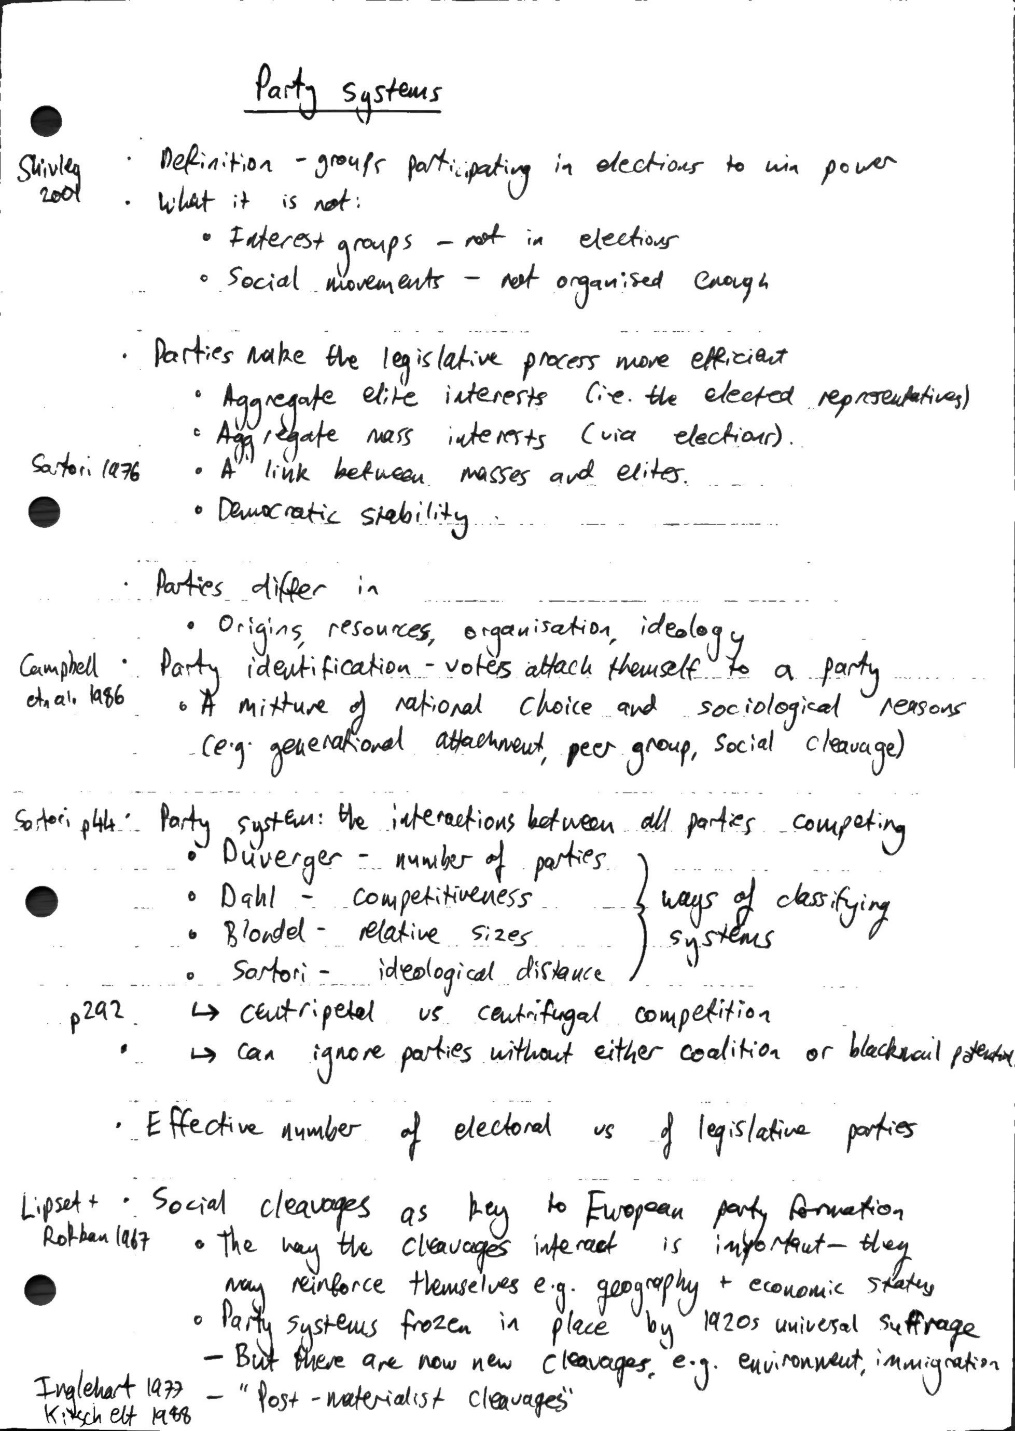 Party systems
Shivley · Definition – groups participating in elections to win power
2001 · What it is not:
• Interest groups – not in elections
• Social movements – not organised enough
· Parties make the legislative process more efficient
• Aggregate elite interests (i.e. the elected representatives)
• Aggregate mass interests (via elections).
Sartori 1976 • A link between masses and elites.
• Democratic stability
· Parties differ in
• Origins, resources, organisation, ideology
Campbell · Party identification – voters attach themself to a party
et al. 1986 • A mixture of rational choice and sociological reasons
(e.g. generational attachment, peer group, social cleavage)
Sartori p44 · Party system: the interactions between all parties competing
• Duverger – number of parties
• Dahl – competitiveness } ways of classifying
• Blondel – relative sizes systems
• Sartori – ideological distance
p292 ↳ centripetal vs centrifugal competition
· ↳ can ignore parties without either coalition or blackmail potential
· Effective number of electoral vs of legislative parties
Lipset + · Social cleavages as key to European party formation
Rokkan 1967 • The way the cleavages interact is important – they
may reinforce themselves e.g. geography + economic status
• Party systems frozen in place by 1920s universal suffrage
– But there are now new cleavages, e.g. environment, immigration
Inglehart 1977 – "Post-materialist cleavages"
Kitschelt 1988